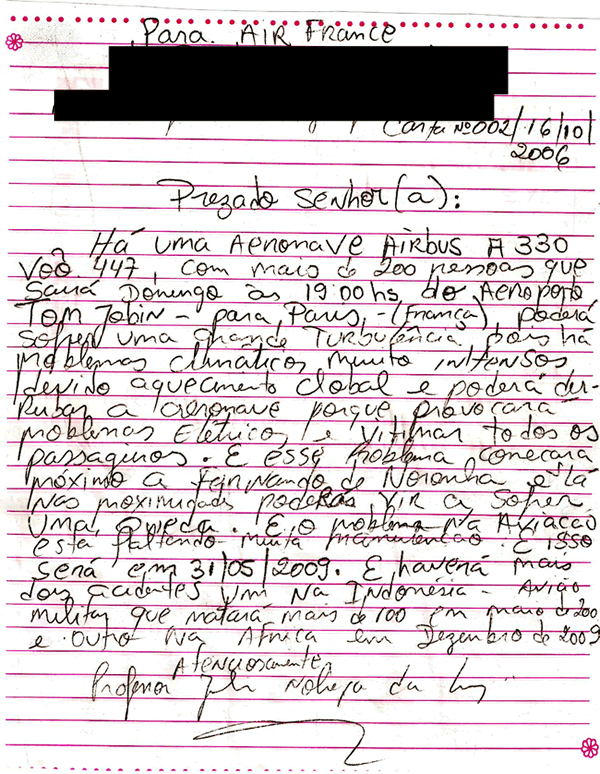 Para. AIR France
Carta Nº 002/16/10/
2006
Prezado Senhor(a):
Há uma Aeronave Airbus A 330
Voô 447, com mais de 200 pessoas que
Sairá Domingo às 19:00hs, do Aeroporto
Tom Jobin - para, Paris, - (França), poderá
sofrer uma grande Turbulência, pois há
problemas climáticos muito intensos
devido aquecimento Global e poderá der-
rubar a aeronave porque provocará
problemas Elétricos, e vitimar todos os
passageiros. E esse problema começará
próximo a Fernando de Noronha e lá
nas proximidades poderá vir a sofrer
uma queda. E o problema na Aviação
está faltando muita manutenção. E isso
será em 31/05/2009. E haverá mais
dois acidentes um na Indonésia - Avião
militar que matará mais de 100 em maio de 200
e outro na Africa em Dezembro de 2009
Atenciosamente,
Professor Nobrega da Luz